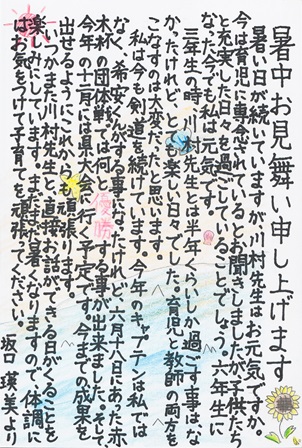 暑中お見舞い申し上げます
暑い日が続いていますが川村先生はお元気ですか。
今は育児に専念されているとお聞きしましたが子供たち
と充実した日々を過ごしていることでしょう。六年生に
なった今でも私は元気です。
三年生の時、川村先生とは半年くらいしか過ごす事はな
かったけれど、とても楽しい日々でした。育児と教師の両方
こなすのは大変だったと思います。
私は今も剣道を続けています。今年のキャプテンは私では
なく、希安くんがする事になったけれど、六月十八日にあった赤
木杯の団体戦では何と優勝する事が出来ました。そして、
今年の十一月には県大会へ行く予定です。今までの成果を
出せるようにこれからも頑張ります。
いつかまた川村先生と、直接お話ができる日がくることを
楽しみにしています。まだまだ暑くなりますので、体調に
はお気をつけて子育てを頑張ってください。
坂口 瑛美より